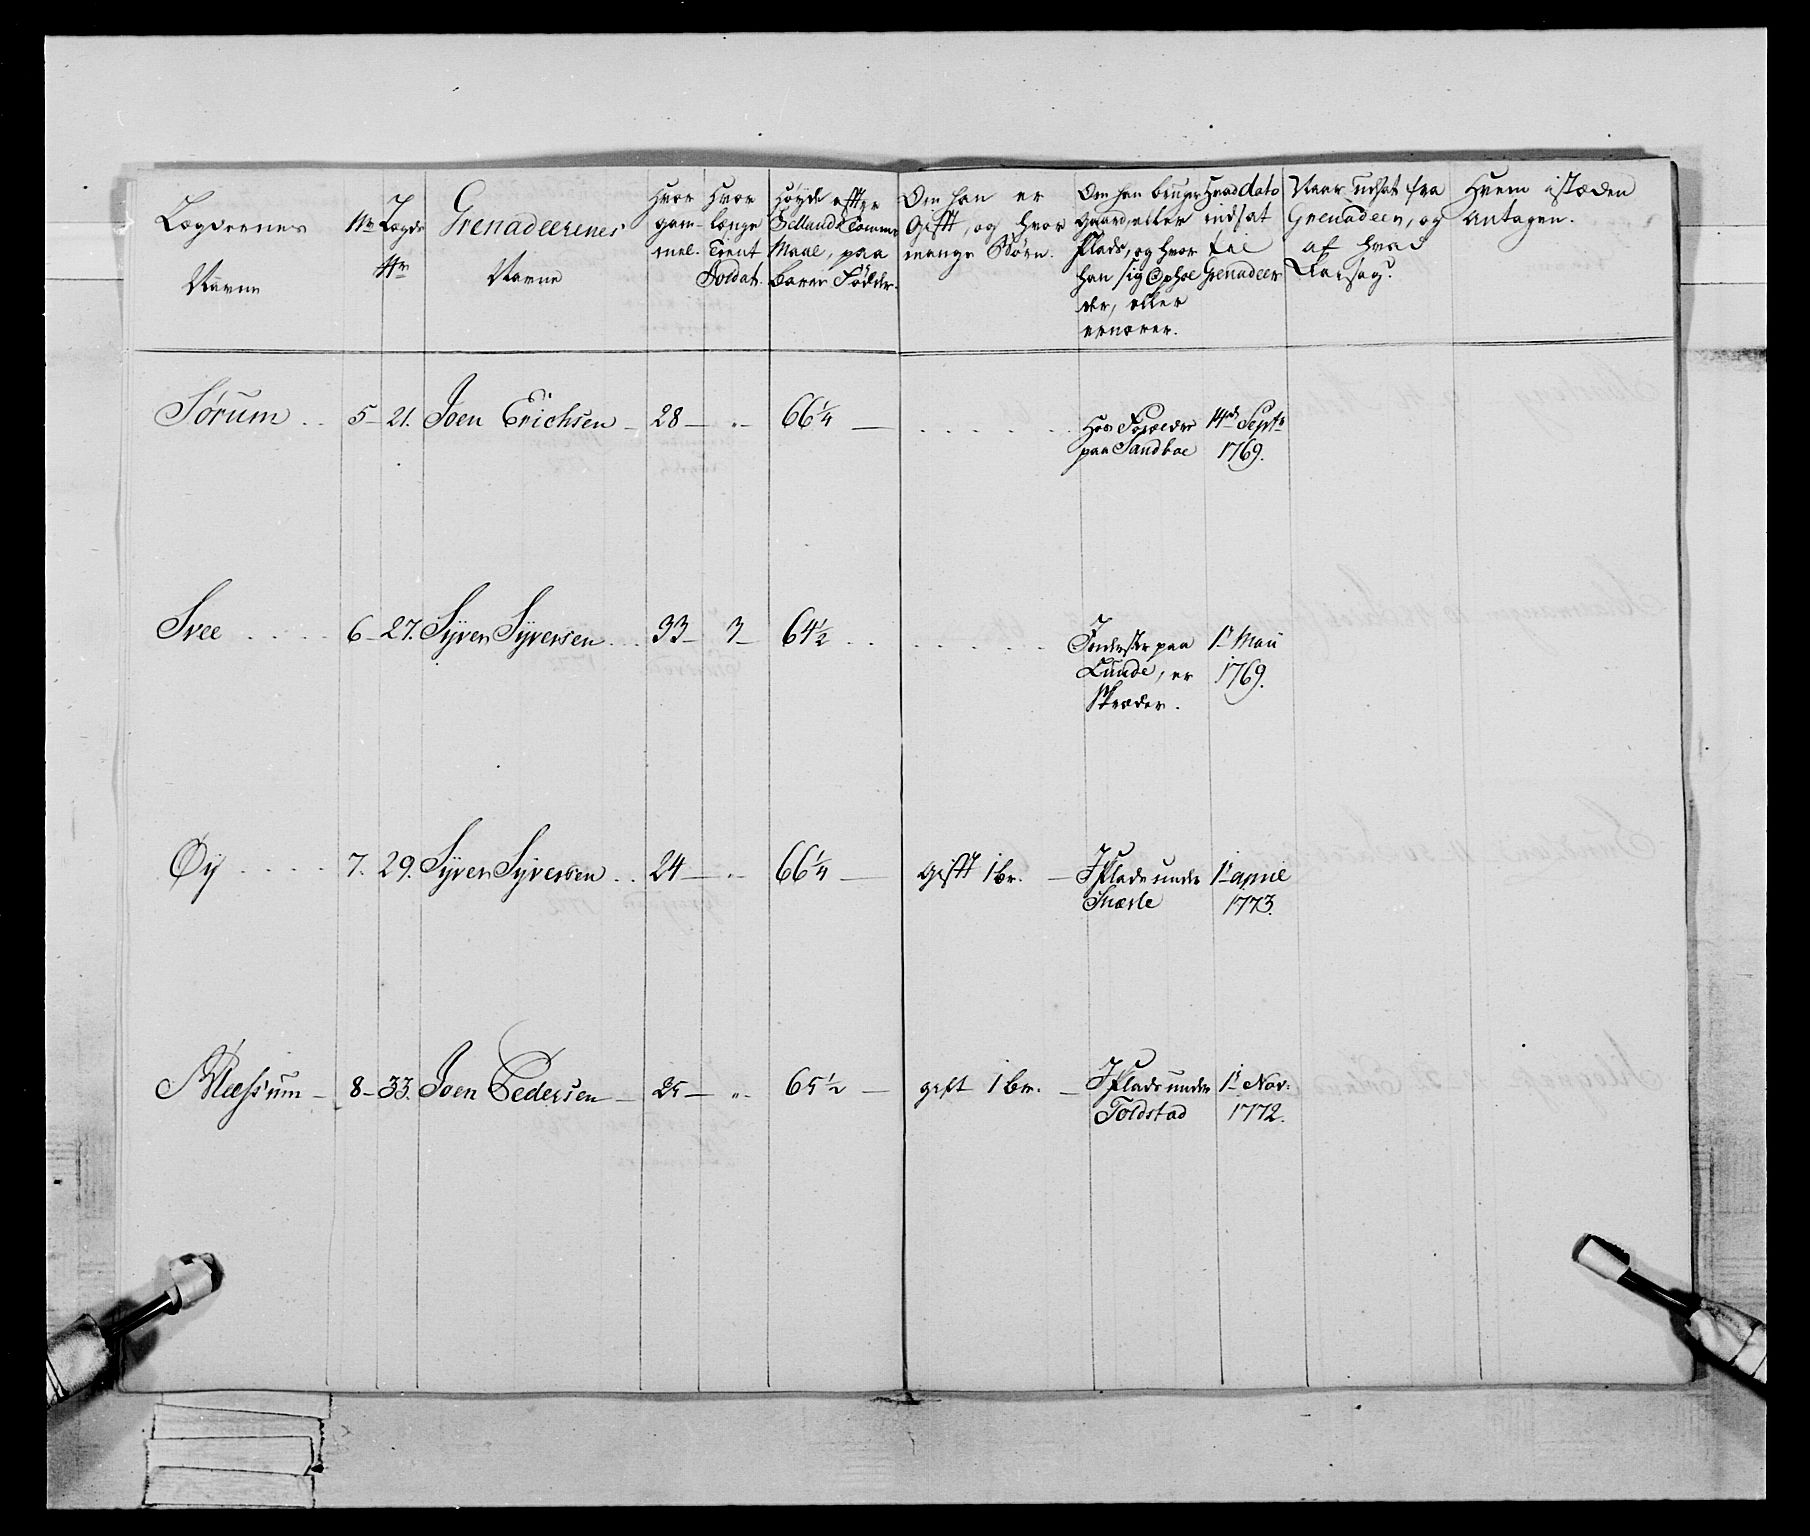 Lægdernes Navne
No
Lægds No
Grenadeerenes Navne
Hvor gammel.
Hvor længe Tient Soldat.
Høyde efter Sellands Tomme Maal, paa barer Födder.
Om han er Gift, og hvor mange Börn.
Om han bruger Gaard, eller Plads, og hvor han sig Ophol der, eller ernærer.
Hvad dato indsat til Grenadeer
Naar udsat fra Grenadeer, og af hvad Aarsag.
Hvem istæden antagen.
Sørum . . 5 – 21. Joen Erichsen – 28 – „ – 66 1/4 – . . . . . . Hos Forældre 14de Septr
paa Sandboe 1769.
Svee . . . . . 6 – 27. Syver Syversen . . . 33 – 3 – 64 1/2 . . . . . . . . Inderster paa 1r Maii
Lunde, er 1769.
Skræder.
Øy . . . . . 7. 29. Syver Syversen . . 24 – „ – 66 1/4 – gifft 1 br. – I Plads under 1r april
Snærle 1773.
Blessum – 8 – 33. Joen Pedersen – 25 – „ – 65 1/2 – gift 1 br. – I Plads under 1r Nov:
Toldstad 1772.